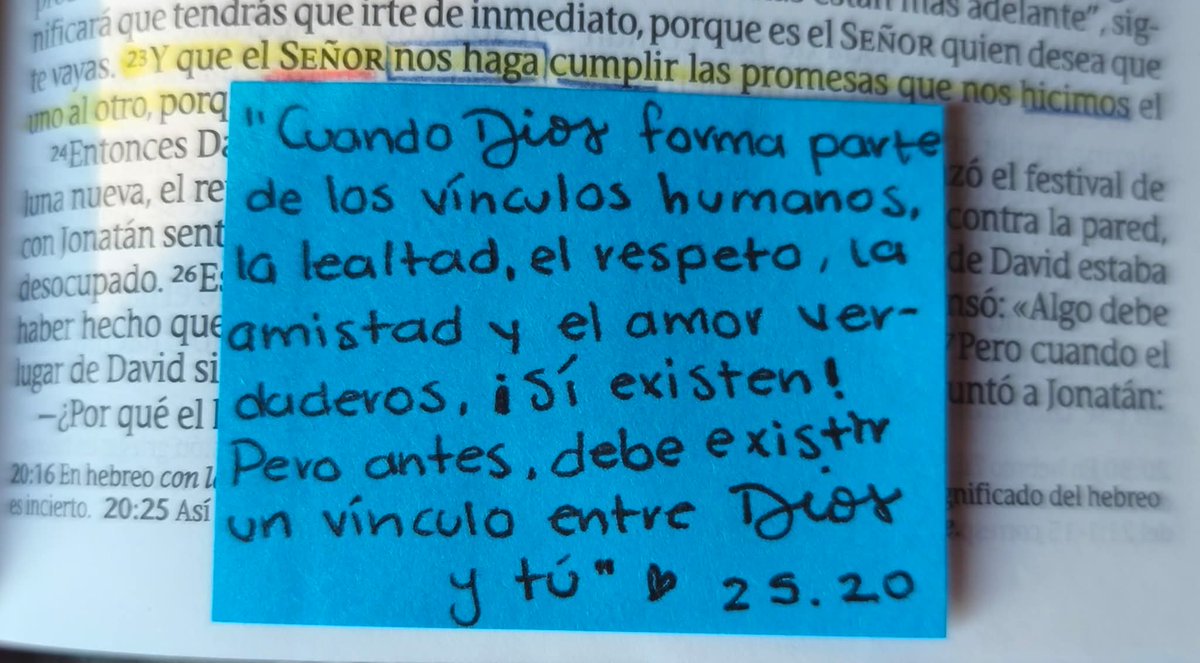 nificará que tendrás que irte de inmediato, porque es el SEÑOR quien desea que
te vayas. 23Y que el SEÑOR nos haga cumplir las promesas que nos hicimos el
uno al otro, porq
24Entonces Da
luna nueva, el re
con Jonatán sent
desocupado. 26Es
haber hecho que
lugar de David si
—¿Por qué el
20:16 En hebreo con l
es incierto. 20:25 Así
"Cuando Dios forma parte
de los vínculos humanos,
la lealtad, el respeto, la
amistad y el amor ver-
daderos, ¡Sí existen!
Pero antes, debe existir
un vínculo entre Dios
y tú" ♥ 2S.20
más adelante", sig-
zó el festival de
contra la pared,
de David estaba
nsó: «Algo debe
Pero cuando el
untó a Jonatán:
gnificado del hebreo